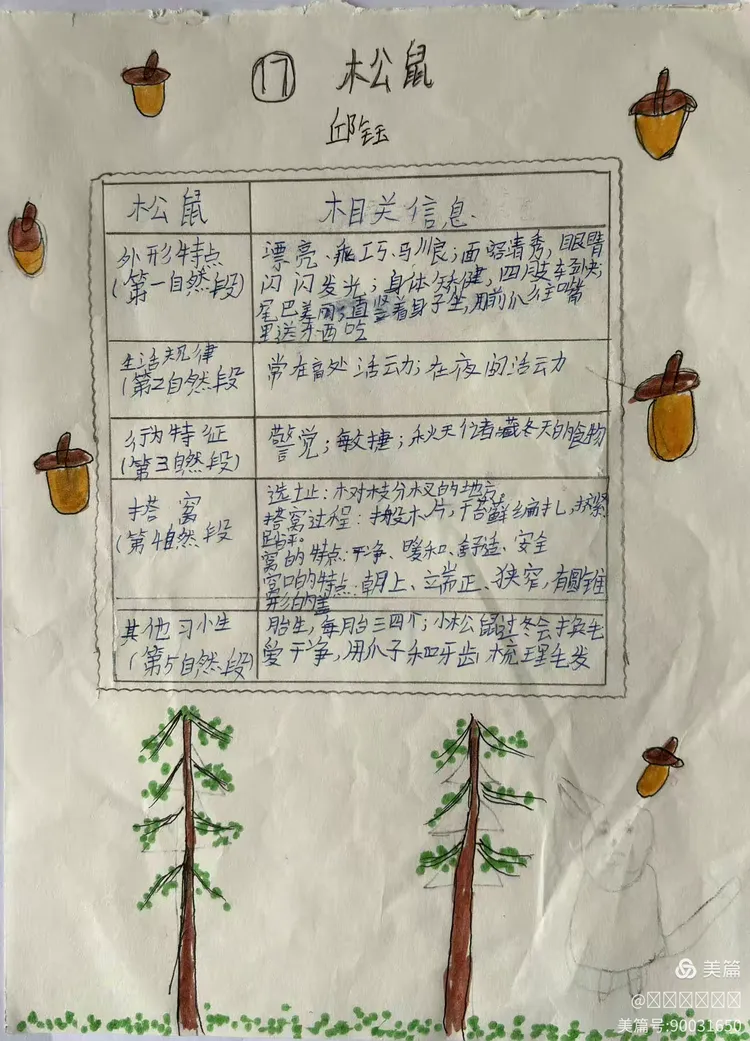 17 松鼠
邱钰
松鼠 相关信息
外形特点
(第一自然段)
漂亮、乖巧、马川良;面容清秀,眼睛
闪闪发光;身体矫健,四肢轻快;
尾巴美丽;直竖着身子坐,用前爪往嘴
里送东西吃
生活规律
(第2自然段
常在高处活动;在夜间活动
行为特征
(第三自然段)
警觉;敏捷;秋天储藏冬天的食物
搭窝
(第4自然段
选址:树枝分杈的地方
搭窝过程:搬木片,干苔藓编扎,挤紧
踏平。
窝的特点:干净、暖和、舒适、安全
窝口的特点:朝上、端正、狭窄,有圆锥
形的盖
其他习小生
(第5自然段)
胎生,每胎三四个;小松鼠过冬会换毛
爱干净,用爪子和牙齿梳理毛发
美篇
美篇号:90031650